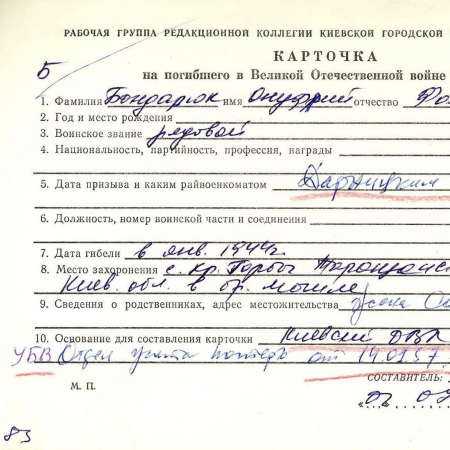 РАБОЧАЯ ГРУППА РЕДАКЦИОННОЙ КОЛЛЕГИИ КИЕВСКОЙ ГОРОДСКОЙ
КАРТОЧКА
Б
на погибшего в Великой Отечественной войне
1. Фамилия Бондарюк имя Онуфрий отчество
2. Год и место рождения
3. Воинское звание рядовой
4. Национальность, партийность, профессия, награды
5. Дата призыва и каким райвоенкоматом Дарницким
6. Должность, номер воинской части и соединения
7. Дата гибели в янв. 1944г.
8. Место захоронения с. Кр. Горбы
Киев. обл. в бр. могиле
9. Сведения о родственниках, адрес местожительства жена
10. Основание для составления карточки Киевский ОВК
УБВ Отдел учета потерь от 14.01.57.
М. П.
СОСТАВИТЕЛЬ:
83